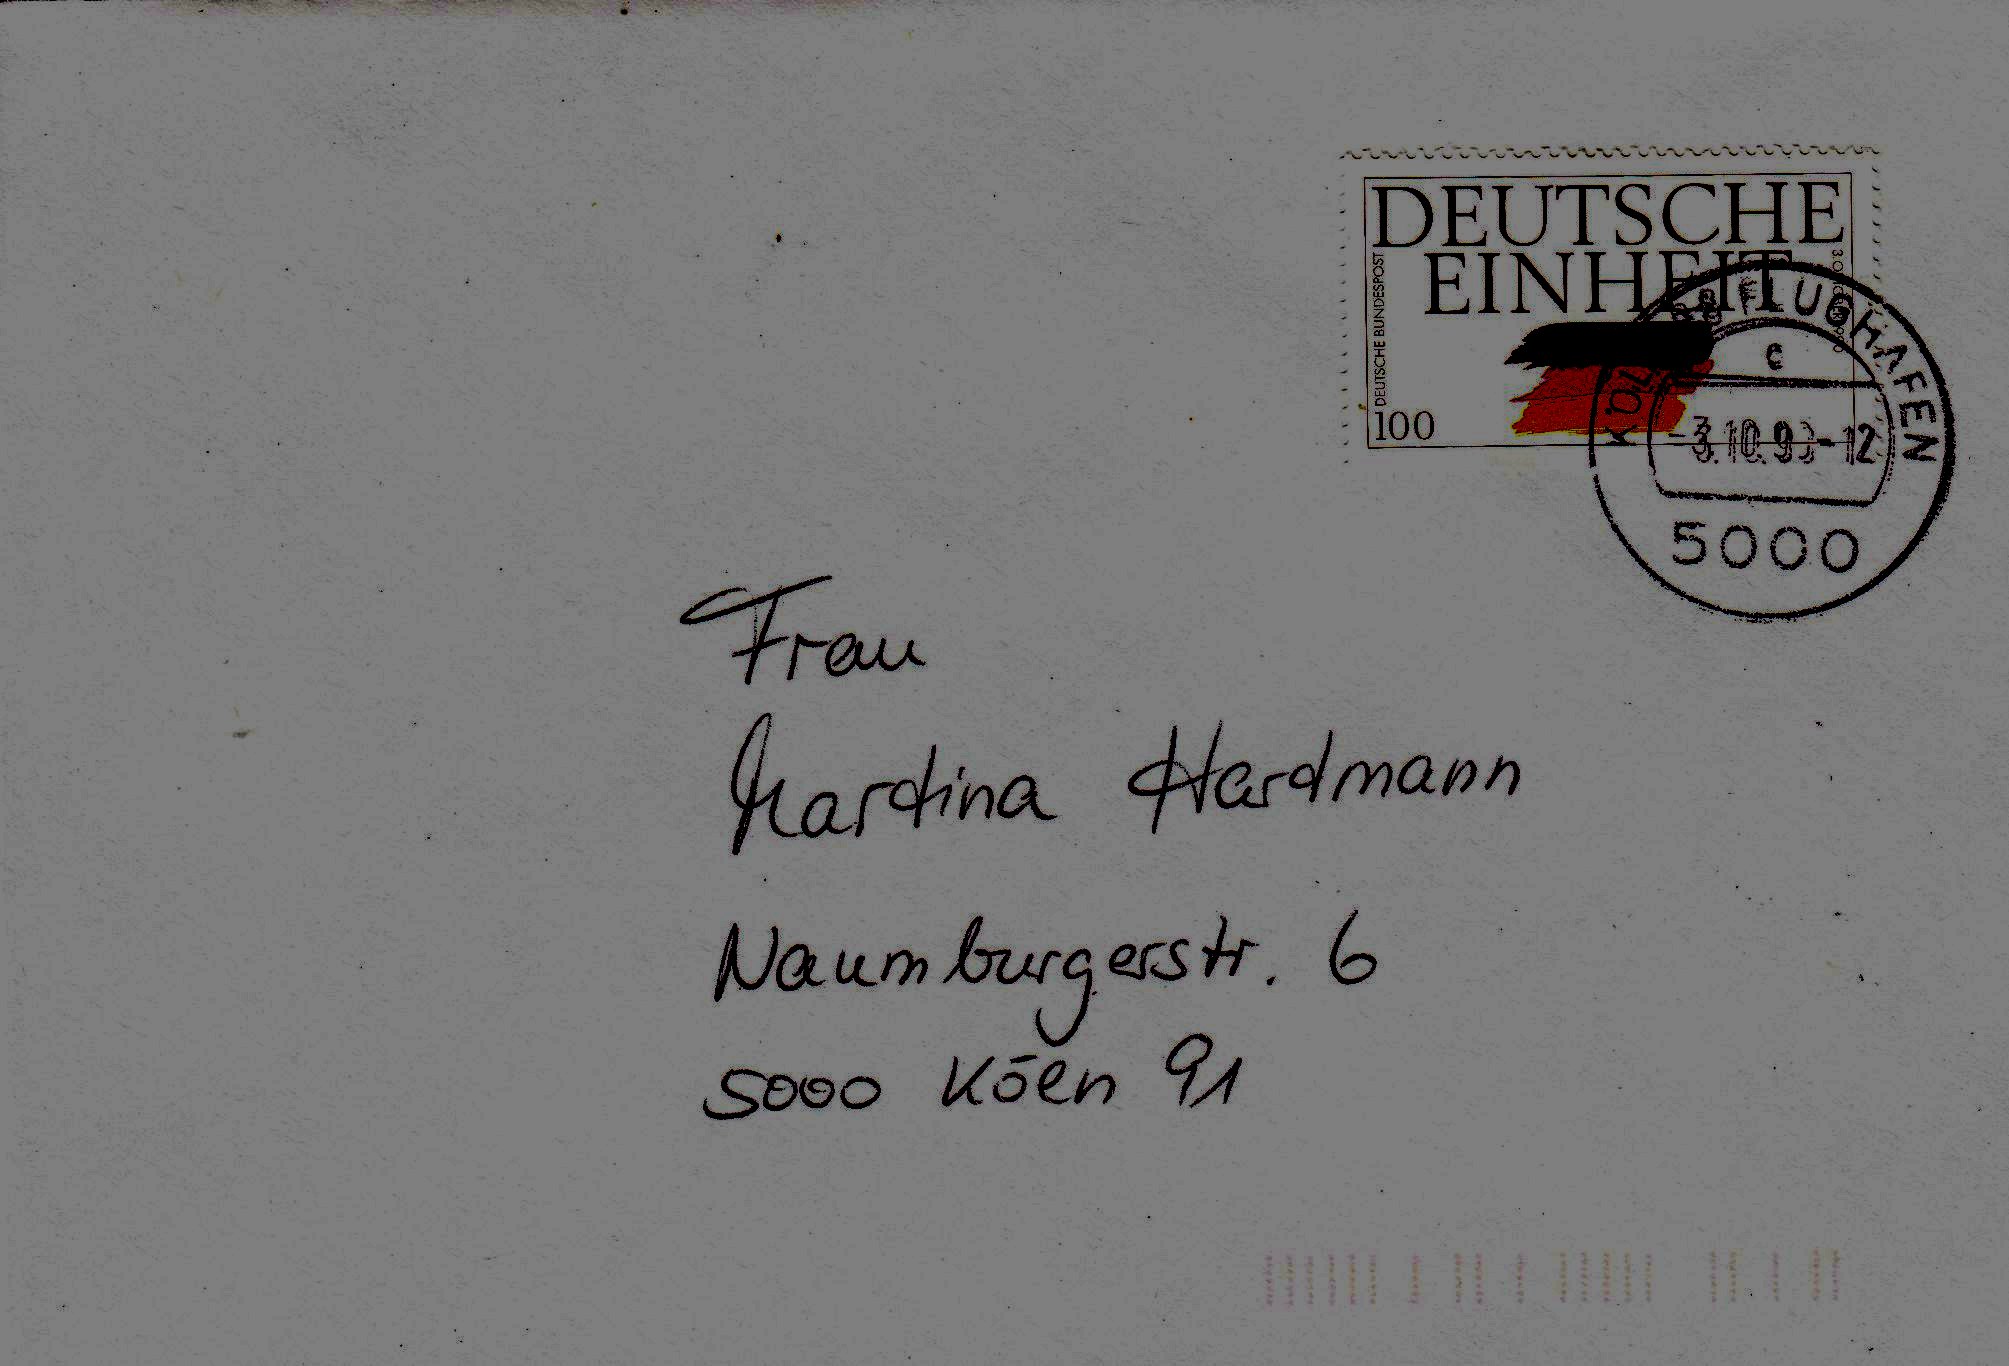 DEUTSCHE
EINHEIT
DEUTSCHE BUNDESPOST
100
FLUGHAFEN
c
5000
Frau
Martina Hardmann
Naumburgerstr. 6
5000 Köln 91